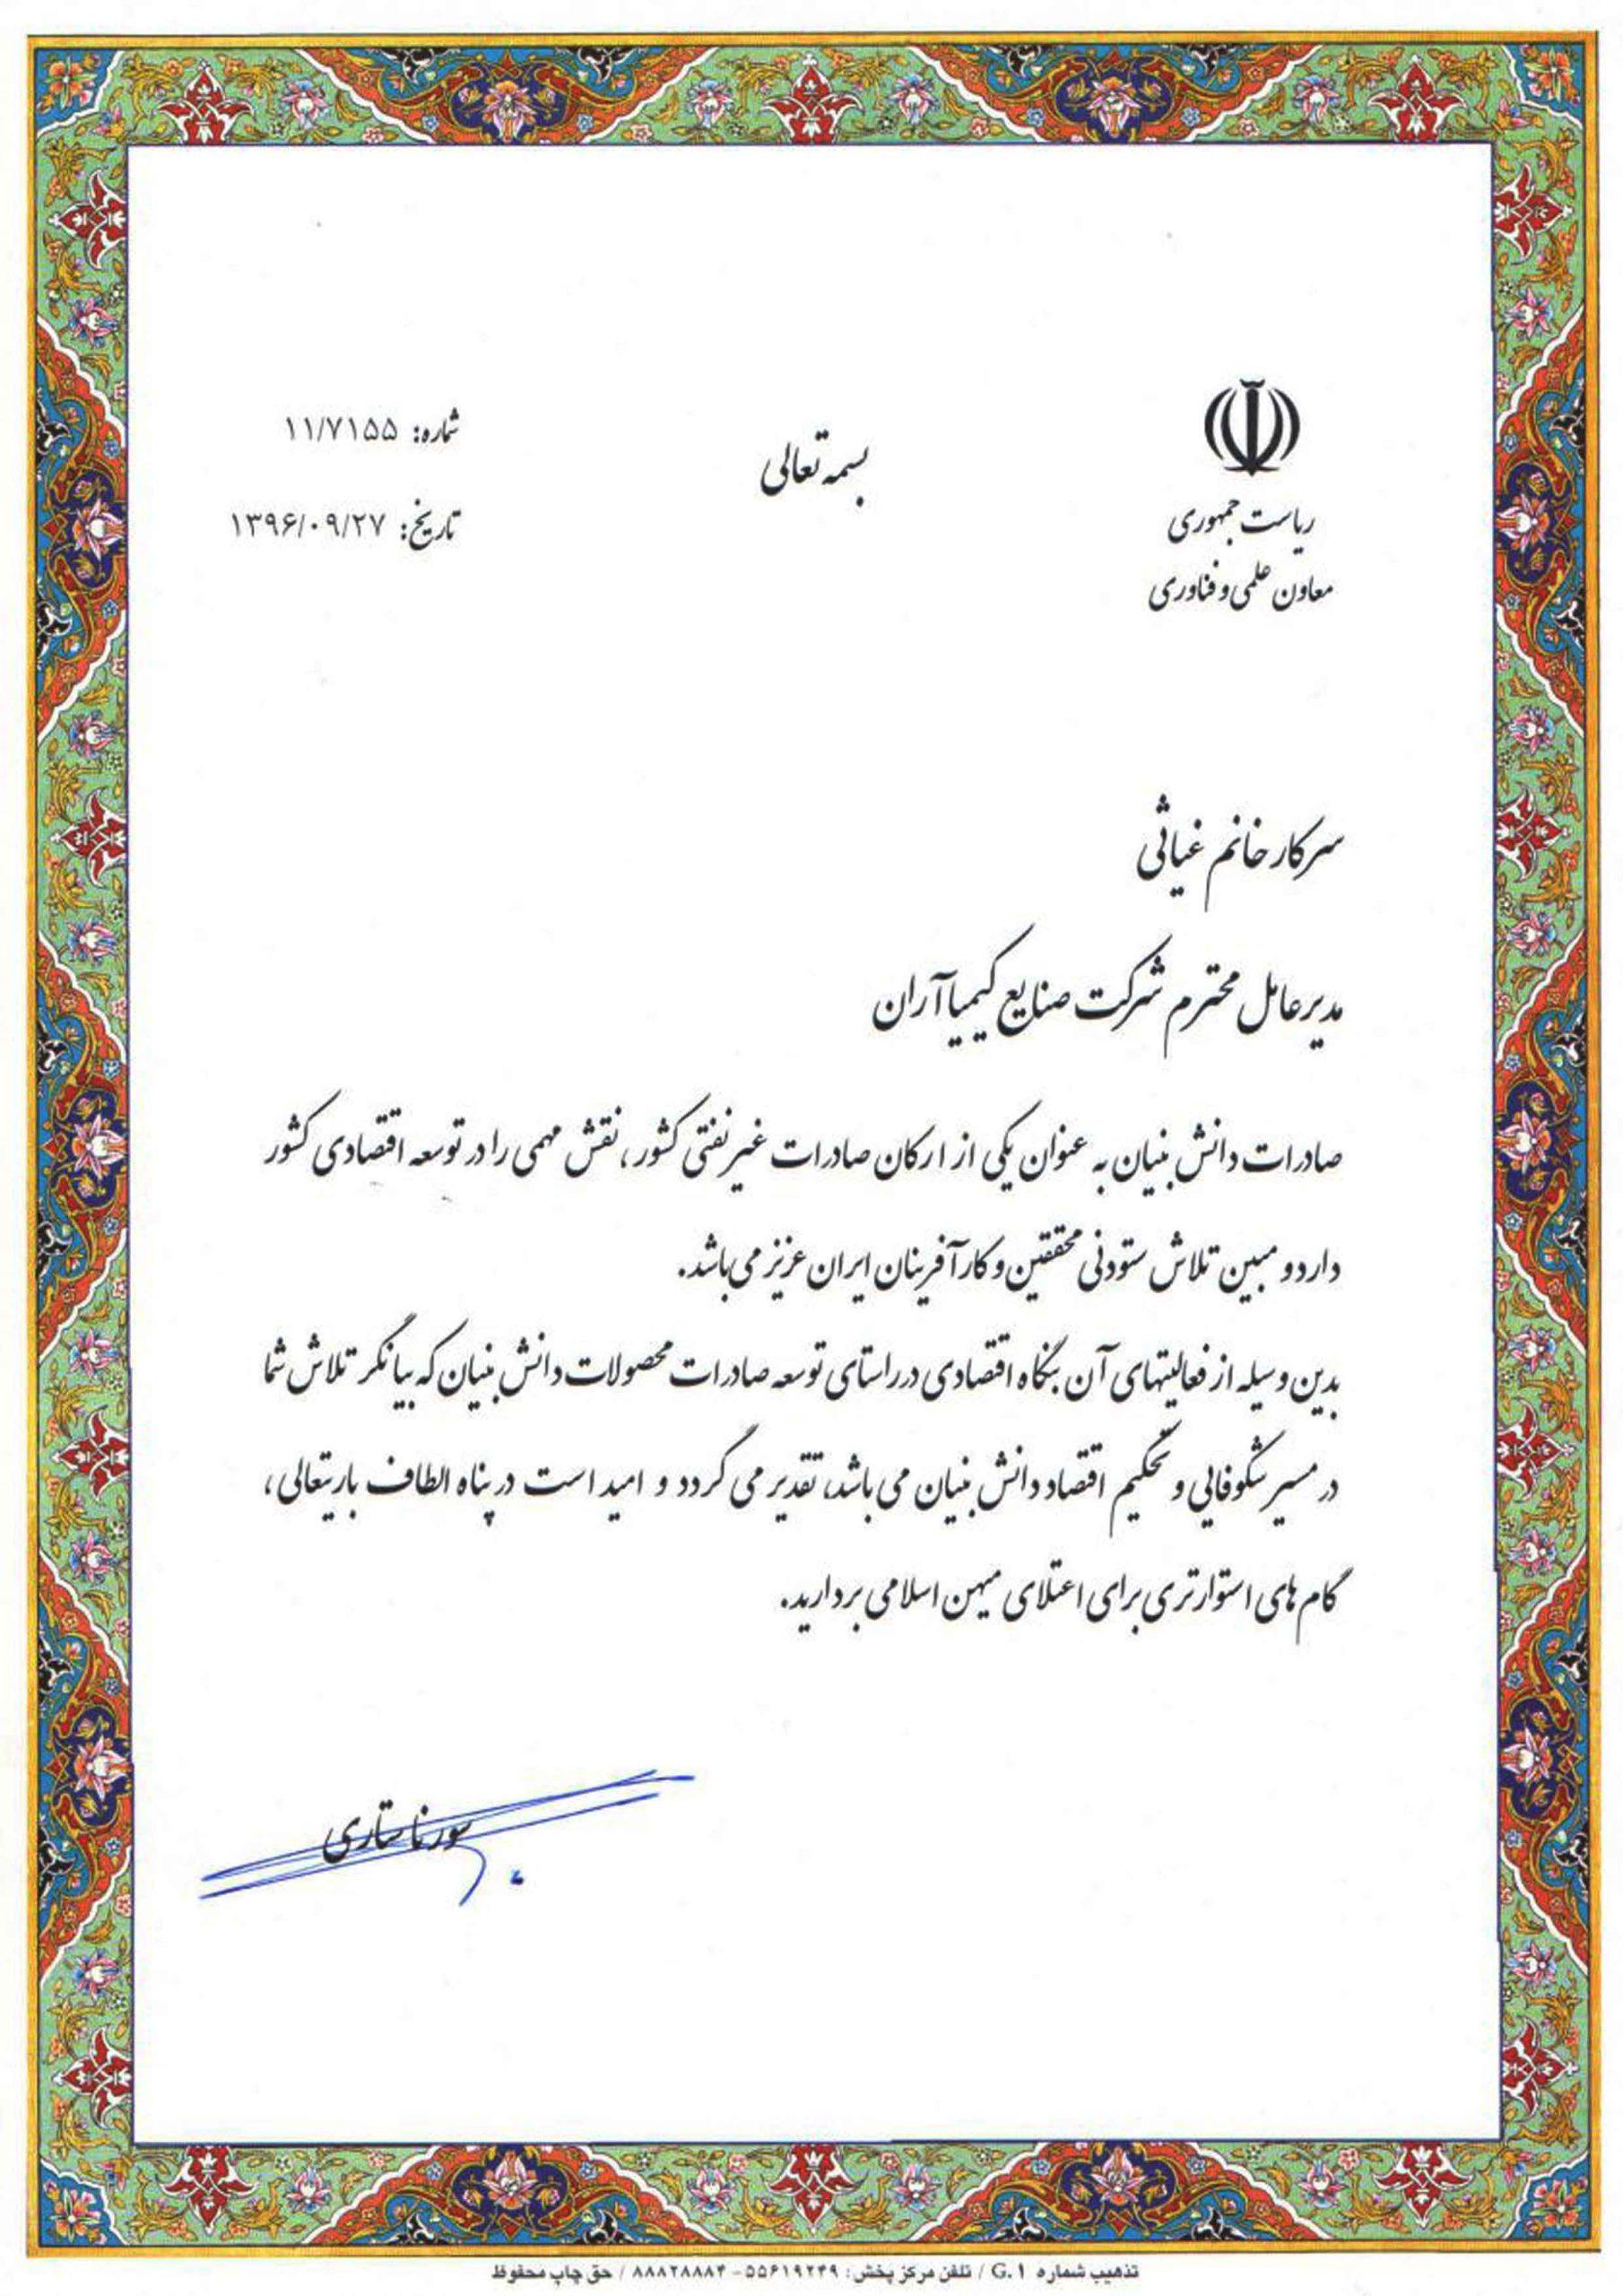 ریاست جمهوری
معاون علمی و فناوری
بسمه تعالی
شماره: ۱۱/۷۱۵۵
تاریخ: ۱۳۹۶/۰۹/۲۷
سرکار خانم غیاثی
مدیرعامل محترم شرکت صنایع کیمیا آران
صادرات دانش بنیان به عنوان یکی از ارکان صادرات غیر نفتی کشور، نقش مهمی را در توسعه اقتصادی کشور
دارد و مبین تلاش ستودنی محققین و کارآفرینان ایران عزیز می باشد.
بدین وسیله از فعالیتهای آن بنگاه اقتصادی در راستای توسعه صادرات محصولات دانش بنیان که بیانگر تلاش شما
در مسیر شکوفایی و تحکیم اقتصاد دانش بنیان می باشد، تقدیر می گردد و امید است در پناه الطاف باریتعالی،
گام های استوارتری برای اعتلای میهن اسلامی بردارید.
سورنا ستاری
تذهیب شماره G.۱ / تلفن مرکز پخش: ۵۵۶۱۹۲۴۹ - ۸۸۸۲۸۸۸۴ / حق چاپ محفوظ